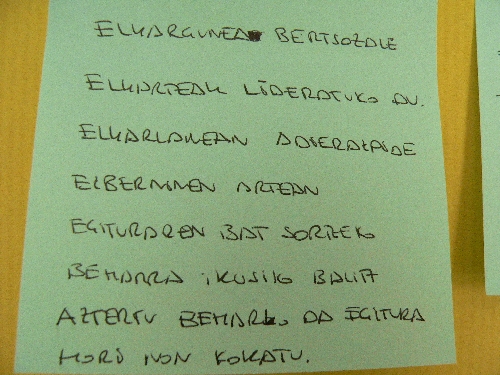 ELKARGUNEA BERTSOZALE
ELKARTEAK LIDERATUKO DU.
ELKARLANEAN ADIERAZPIDE
EZBERDINEN ARTEAN
EGITURAREN BAT SORTZEKO
BEHARRA IKUSIKO BALITZ
AZTERTU BEHARKO DA EGITURA
HORI NON KOKATU.